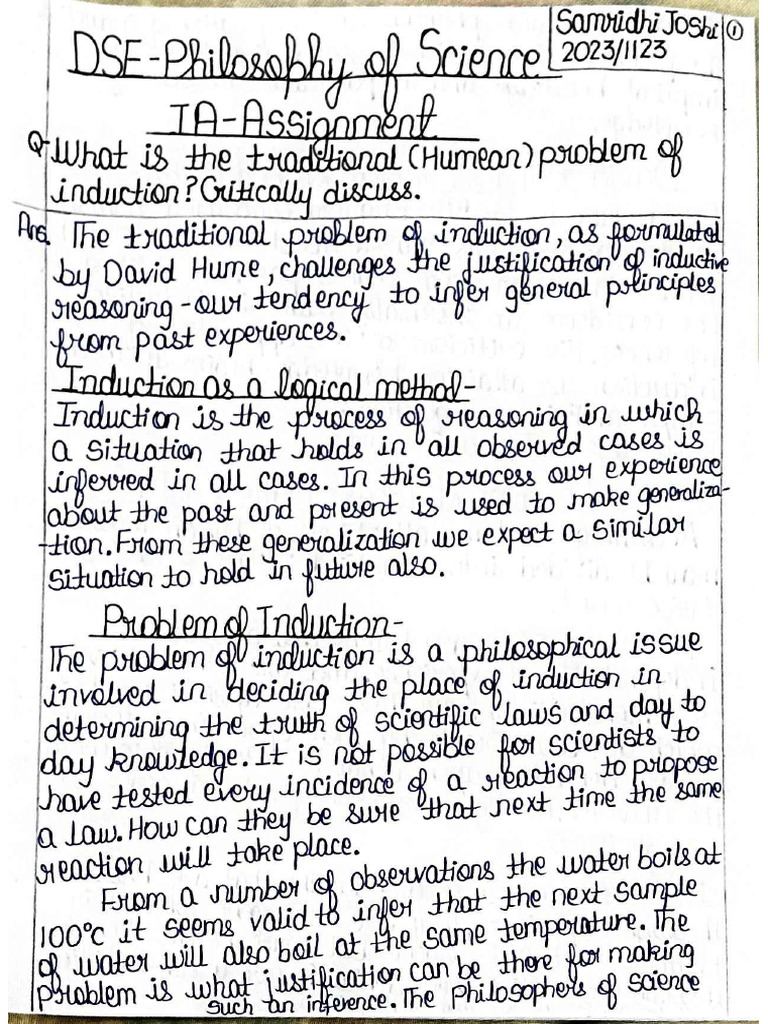 Samridhi Joshi ①
2023/1123
DSE-Philosophy of Science
IA-Assignment
Q- What is the traditional (Humean) problem of
induction? Critically discuss.
Ans. The traditional problem of induction, as formulated
by David Hume, challenges the justification of inductive
reasoning - our tendency to infer general principles
from past experiences.
Induction as a logical method-
Induction is the process of reasoning in which
a situation that holds in all observed cases is
inferred in all cases. In this process our experience
about the past and present is used to make generaliza-
-tion. From these generalization we expect a similar
situation to hold in future also.
Problem of Induction-
The problem of induction is a philosophical issue
involved in deciding the place of induction in
determining the truth of scientific laws and day to
day knowledge. It is not possible for scientists to
have tested every incidence of a reaction to propose
a law. How can they be sure that next time the same
reaction will take place.
From a number of observations the water boils at
100°c it seems valid to infer that the next sample
of water will also boil at the same temperature. The
problem is what justification can be there for making
such an inference. The Philosophers of science